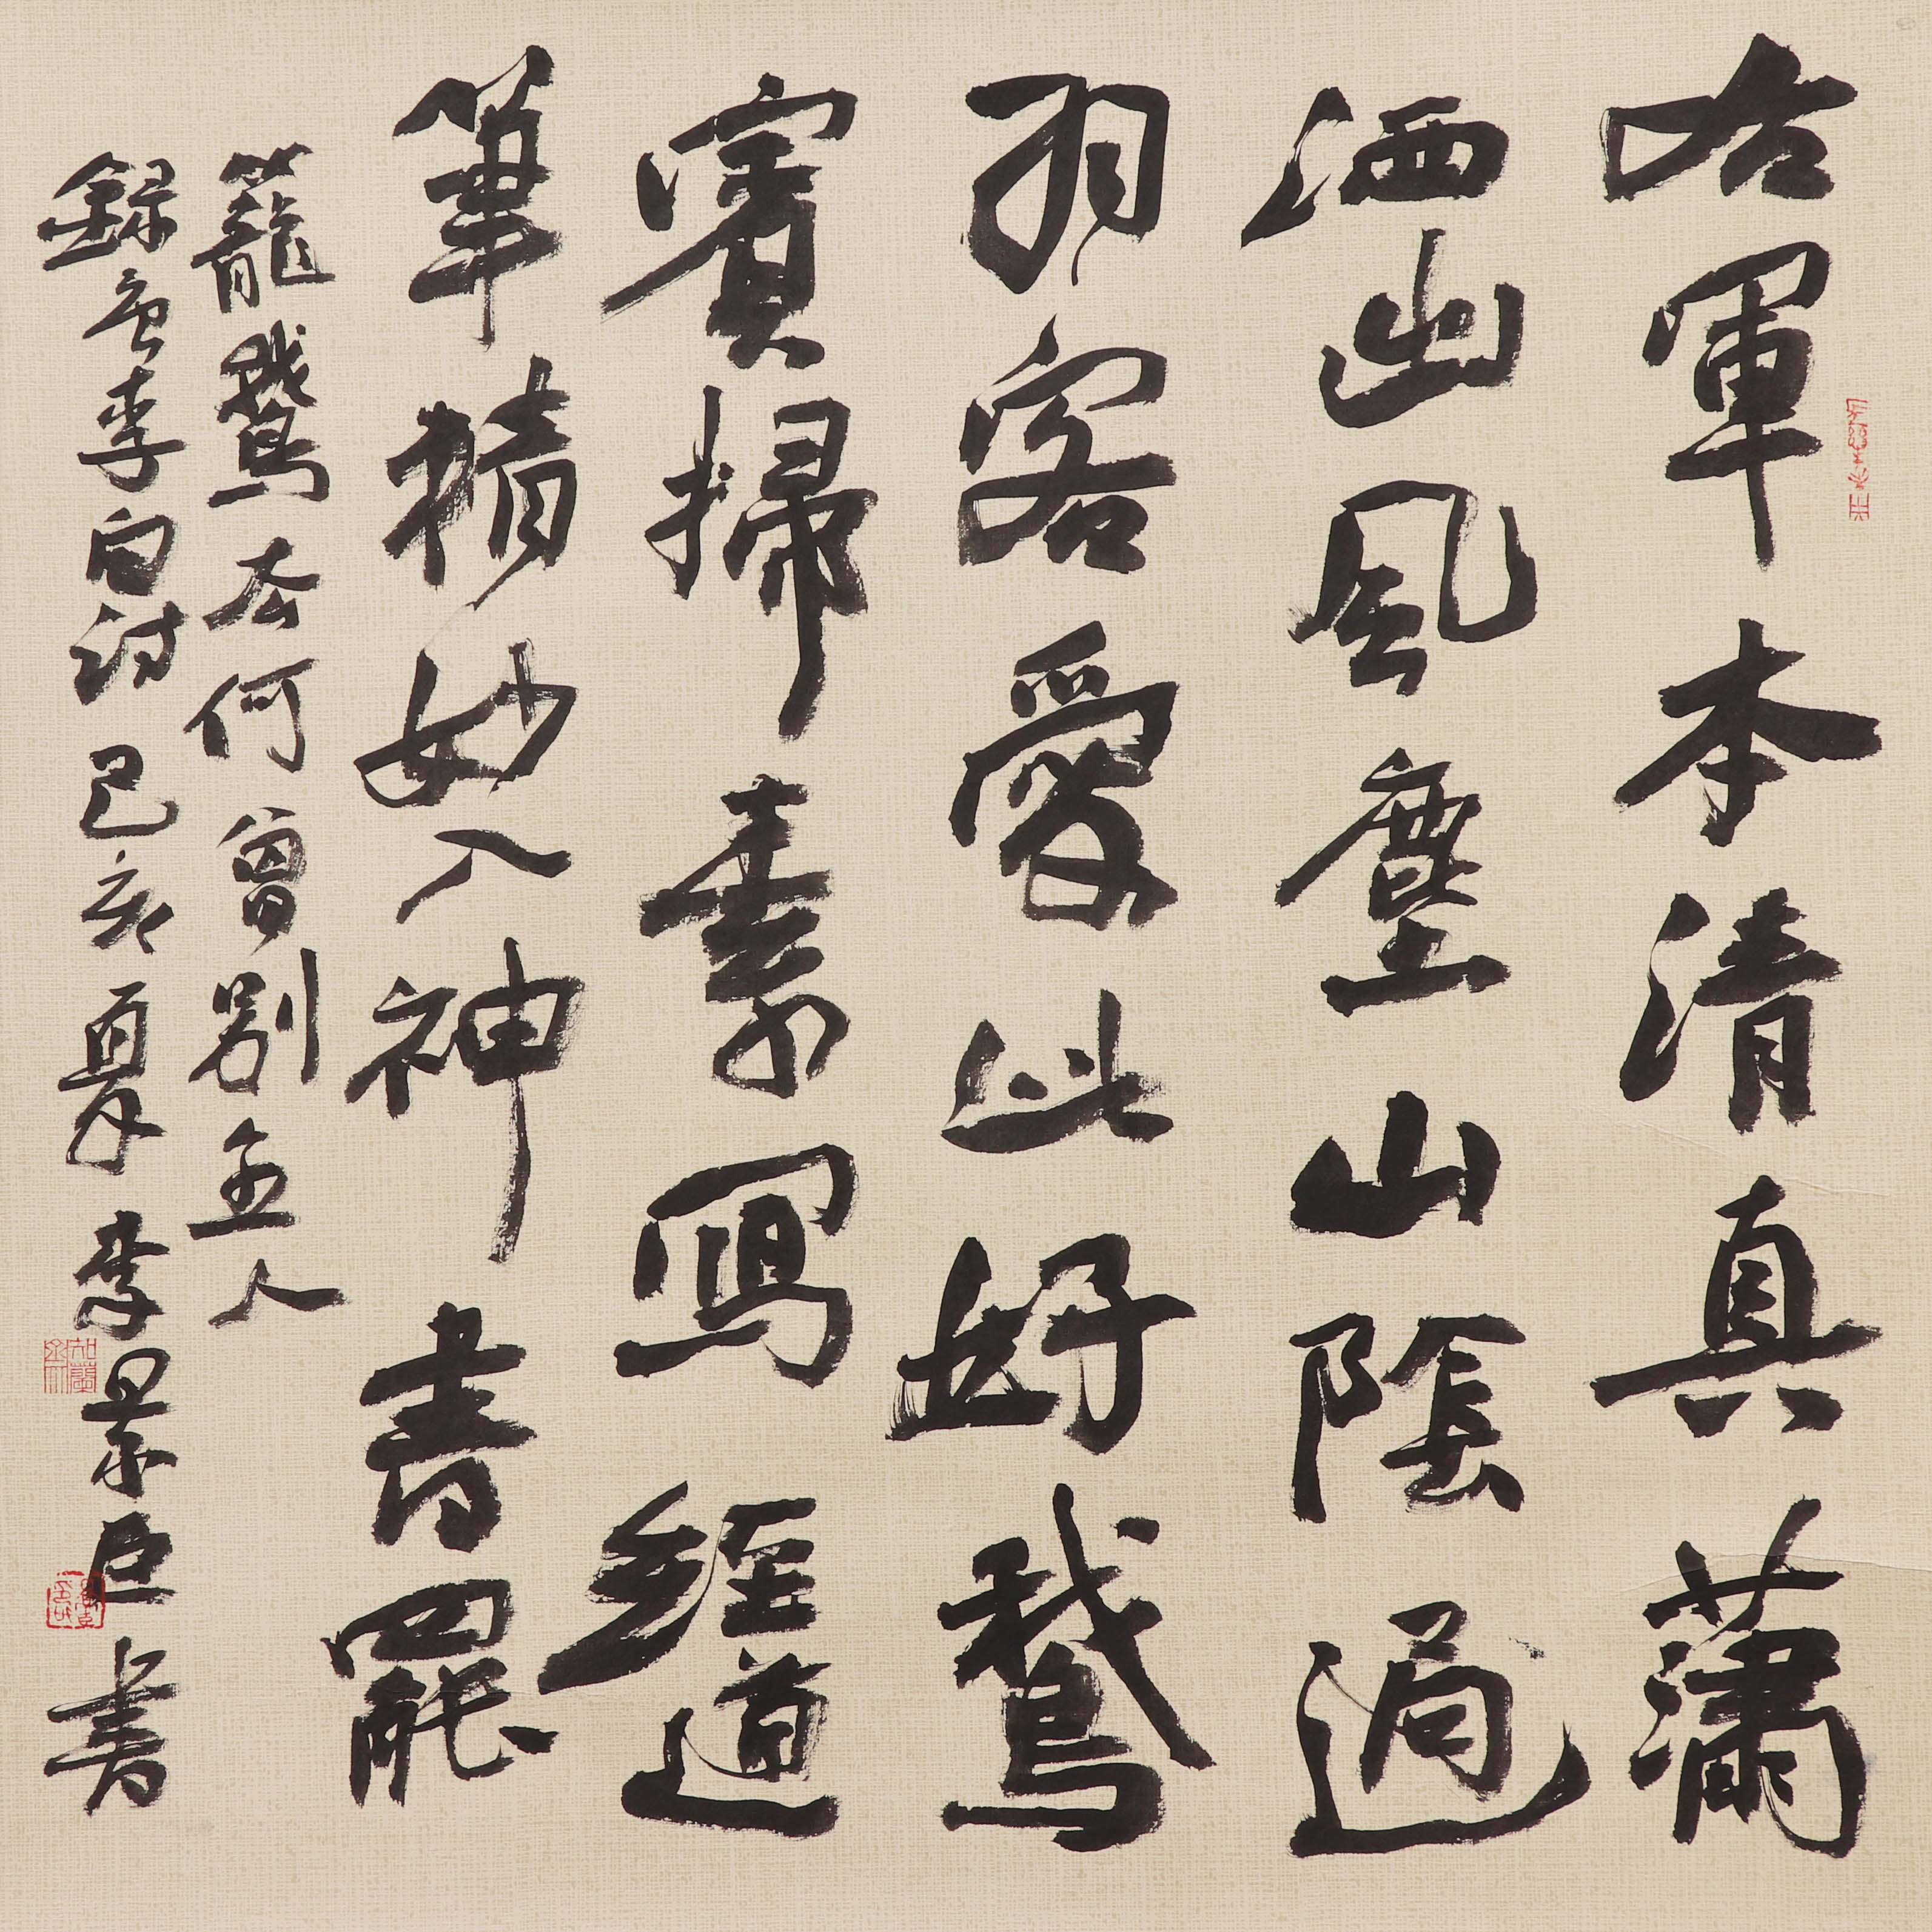 右軍本清真瀟
洒出風塵山陰過
羽客愛此好鵝
賓掃素寫經道
筆精妙入神書罷
籠鵝去何曾別主人
錄唐李白詩己亥夏李景臣書